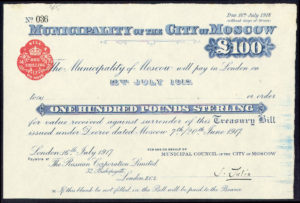 No 036
Due 16th July 1918
MUNICIPALITY OF THE CITY OF MOSCOW
£100
The Municipality of Moscow will pay in London on
16TH JULY 1918
to or order
ONE HUNDRED POUNDS STERLING
for value received against surrender of this Treasury Bill
issued under Decree dated Moscow 7th/20th June 1917
London 16th July 1917
FOR AND ON BEHALF OF
MUNICIPAL COUNCIL OF THE CITY OF MOSCOW
Payable at
The Russian Corporation Limited
Bishopsgate
London E.C.2
If this blank be not filled in, the Bill will be paid to the Bearer